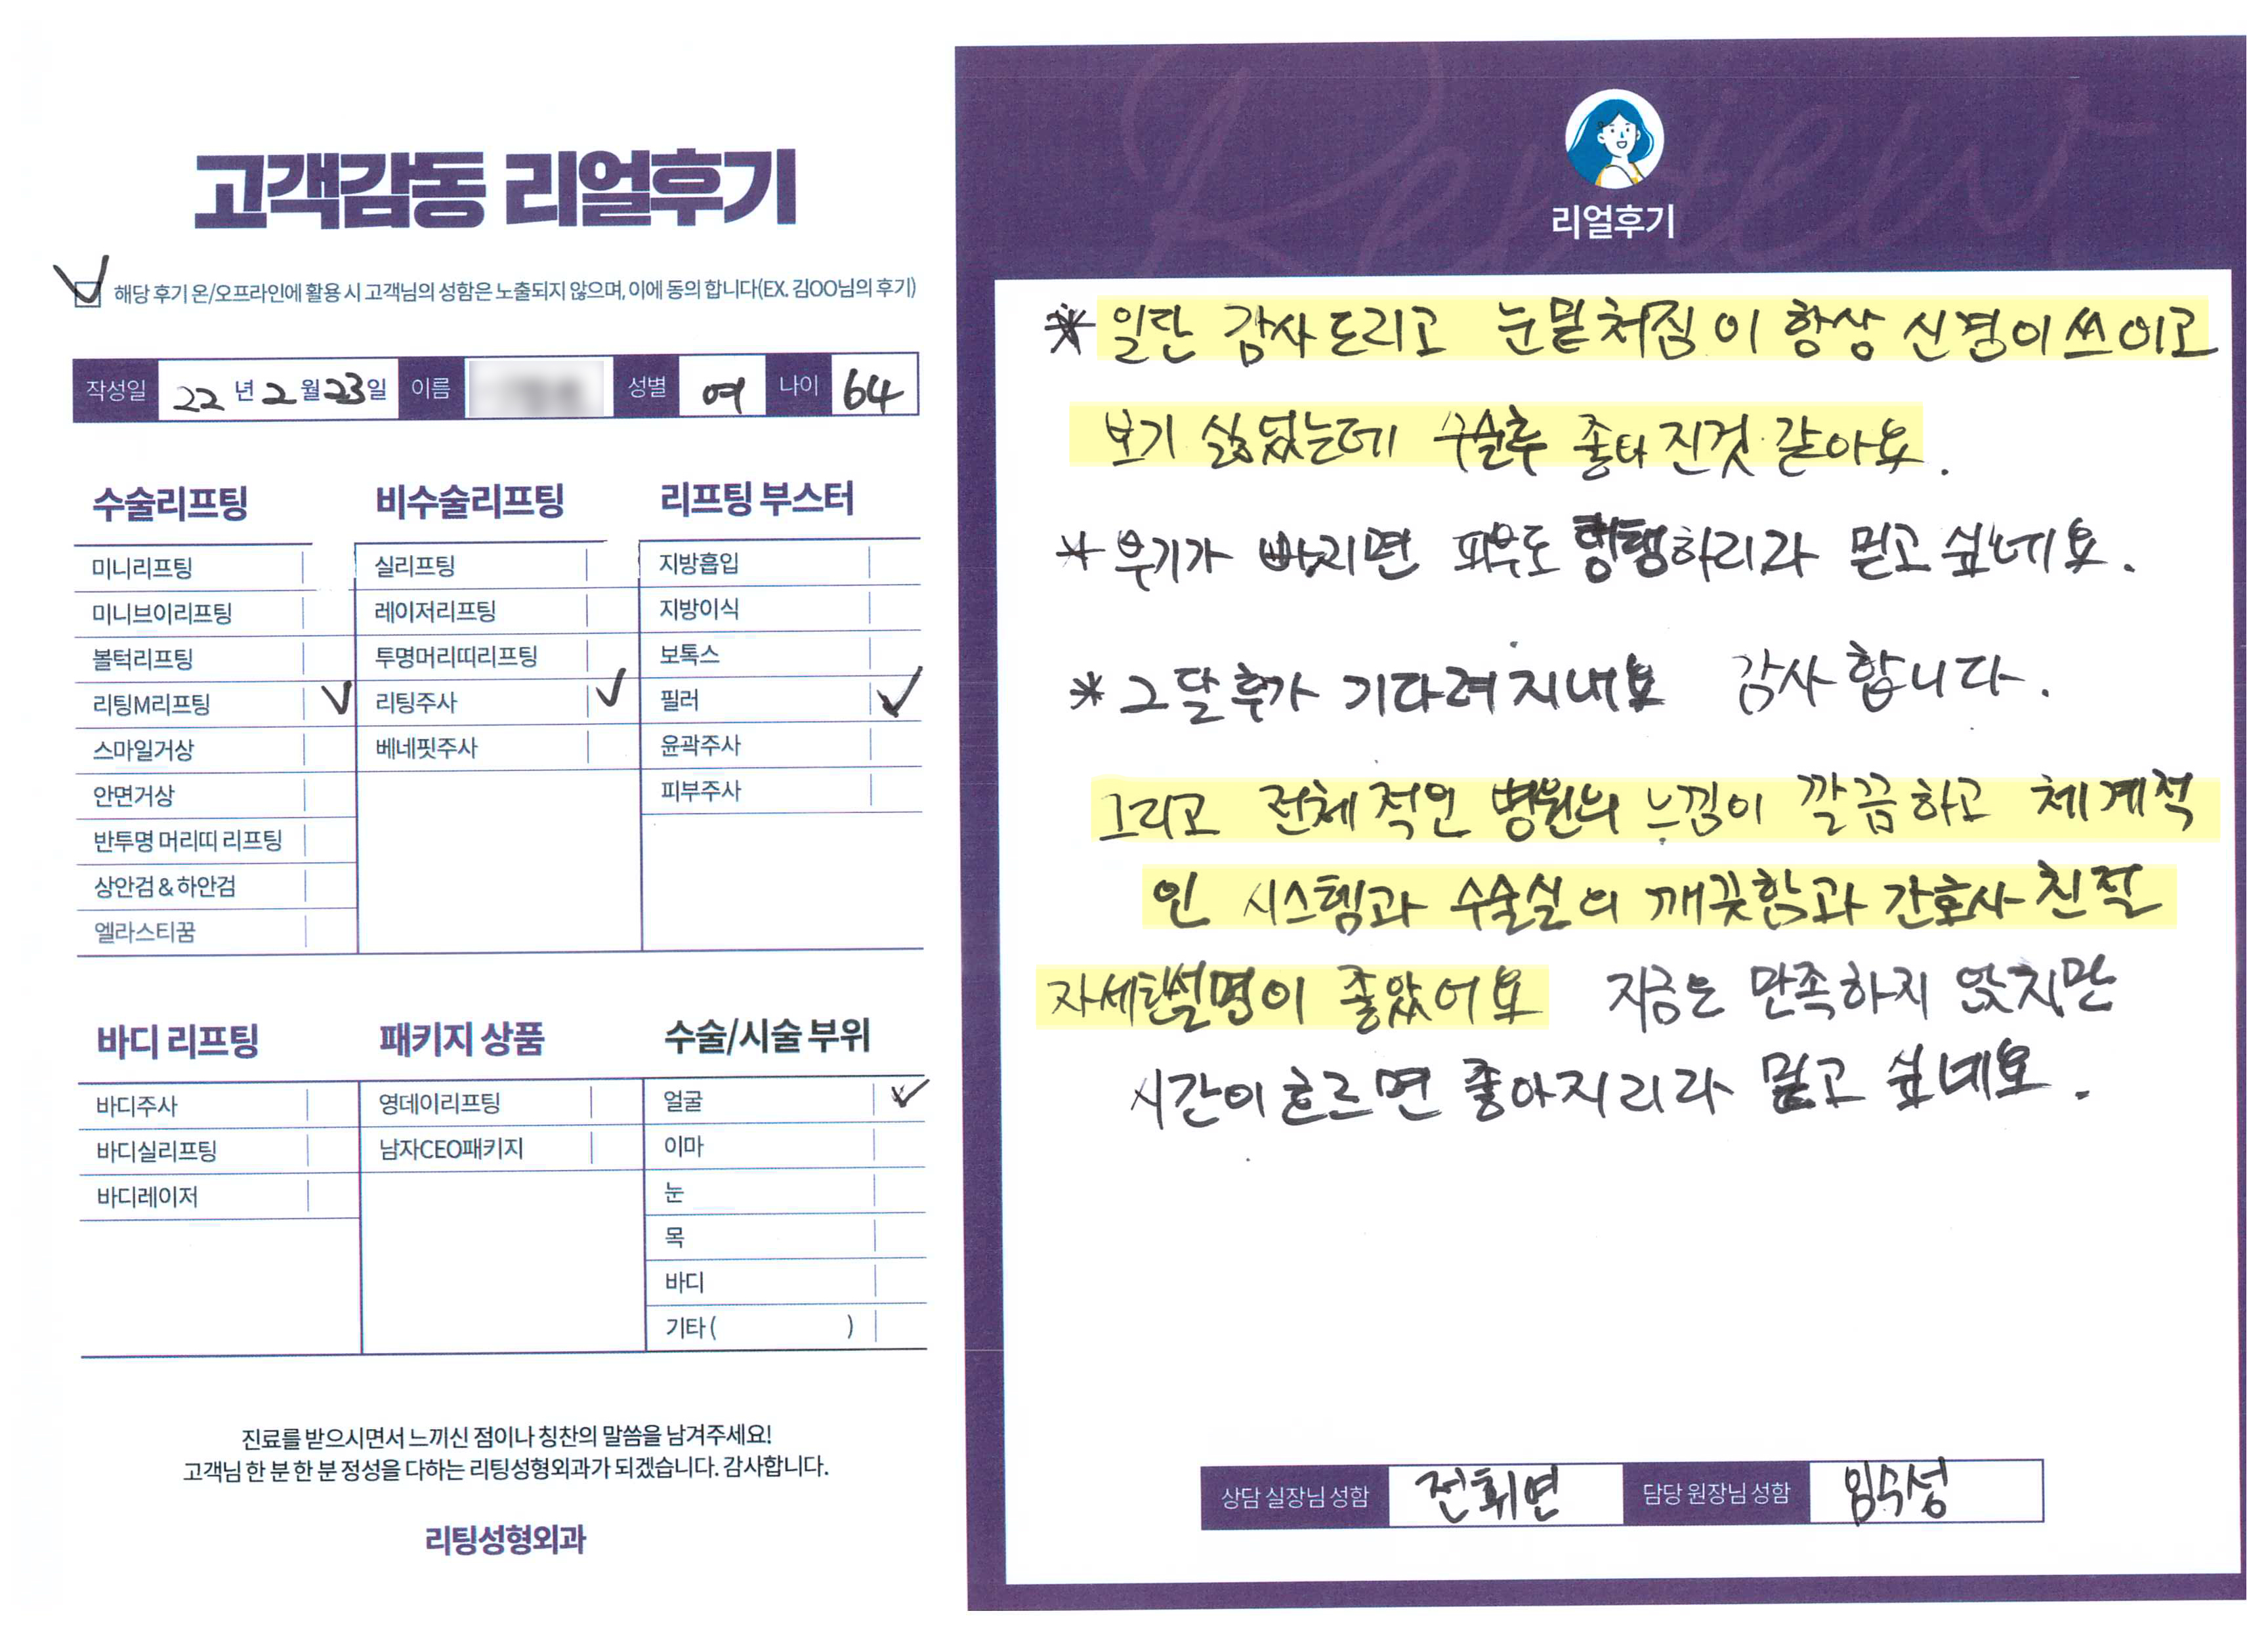 고객감동 리얼후기
해당 후기 온/오프라인에 활용 시 고객님의 성함은 노출되지 않으며, 이에 동의 합니다(EX. 김OO님의 후기)
작성일 22 년 2 월 23 일 이름 성별 여 나이 64
수술리프팅
미니리프팅
미니브이리프팅
볼턱리프팅
리팅M리프팅
스마일거상
안면거상
반투명 머리띠 리프팅
상안검 & 하안검
엘라스티꿈
비수술리프팅
실리프팅
레이저리프팅
투명머리띠리프팅
리팅주사
베네핏주사
리프팅 부스터
지방흡입
지방이식
보톡스
필러
윤곽주사
피부주사
바디 리프팅
바디주사
바디실리프팅
바디레이저
패키지 상품
영데이리프팅
남자CEO패키지
수술/시술 부위
얼굴
이마
눈
목
바디
기타 ( )
진료를 받으시면서 느끼신 점이나 칭찬의 말씀을 남겨주세요!
고객님 한 분 한 분 정성을 다하는 리팅성형외과가 되겠습니다. 감사합니다.
리팅성형외과
Review
리얼후기
* 일단 감사드리고 눈밑처짐이 항상 신경이쓰이고
보기 싫었는데 수술후 좋타진것 같아요.
* 부기가 빠지면 피부도 팽팽하리라 믿고싶네요.
* 그달후가 기다려지내요 감사합니다.
그리고 전체적인 병원의 느낌이 깔끔하고 체계적
인 시스템과 수술실의 깨끗함과 간호사 친절
자세한설명이 좋았어요 지금은 만족하지 않치만
시간이흐르면 좋아지리라 믿고 싶네요.
상담 실장님 성함 전휘연 담당 원장님 성함 임수성